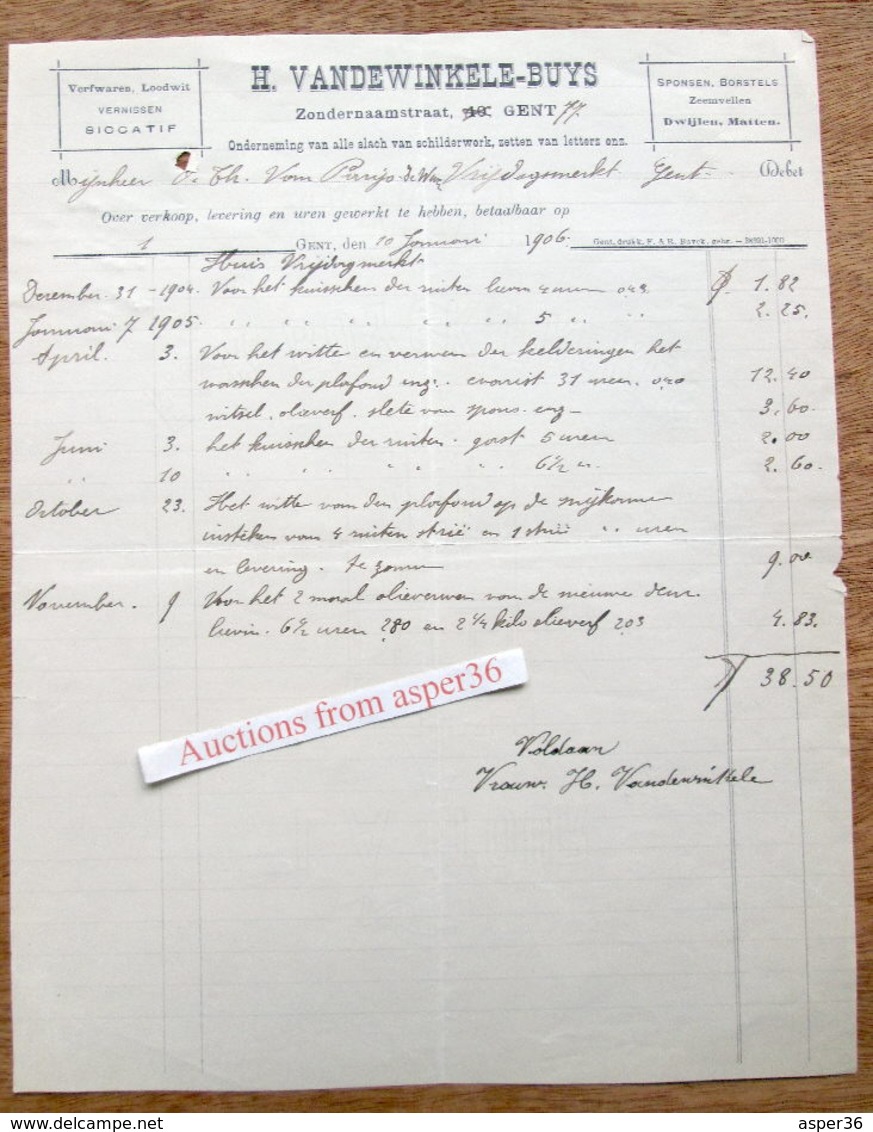 H. VANDEWINKELE-BUYS
Verfwaren, Loodwit
VERNISSEN
SICCATIF
SPONSEN, BORSTELS
Zeemvellen
Dwijlen, Matten.
Zondernaamstraat, 49. GENT 77.
Onderneming van alle slach van schilderwerk, zetten van letters enz.
Mijnheer Th. Van Vrijdagmerkt Gent Debet
Over verkoop, levering en uren gewerkt te hebben, betaalbaar op
1 GENT, den 20 Januari 1906.
Gent, drukk. F. & R. Buyck, gebr. — 38391-1000
Huis Vrijdagmerkt
December 31 - 1904 Voor het kuisschen der ruiten lievin 4 uren 1.82
Januari 7 1905 " " " " " 5 " " 2.25.
April 3. Voor het witte en verwen der kelderingen het
wasschen der plafond enz. evarist 31 uren 040 12.40
witsel. olieverf. slete van spons. enz - 3.60.
Juni 3. het kuisschen der ruiten - gast 5 uren 2.00
" 10 " " " " " 6 1/2 u. 2.60.
October 23. Het witte van den plafond op de
insteken van 4 ruiten strié en 1 strié " uren
en levering. te zamen 9.00
November. 9 Voor het 2 maal olieverwen van de nieuwe deur
lievin. 6 1/2 uren 280 en 2 1/4 kilo olieverf 203 4.83.
38.50
Voldaan
Vrouw. H. Vandewinkele
Auctions from asper36
delcampe.net
asper36